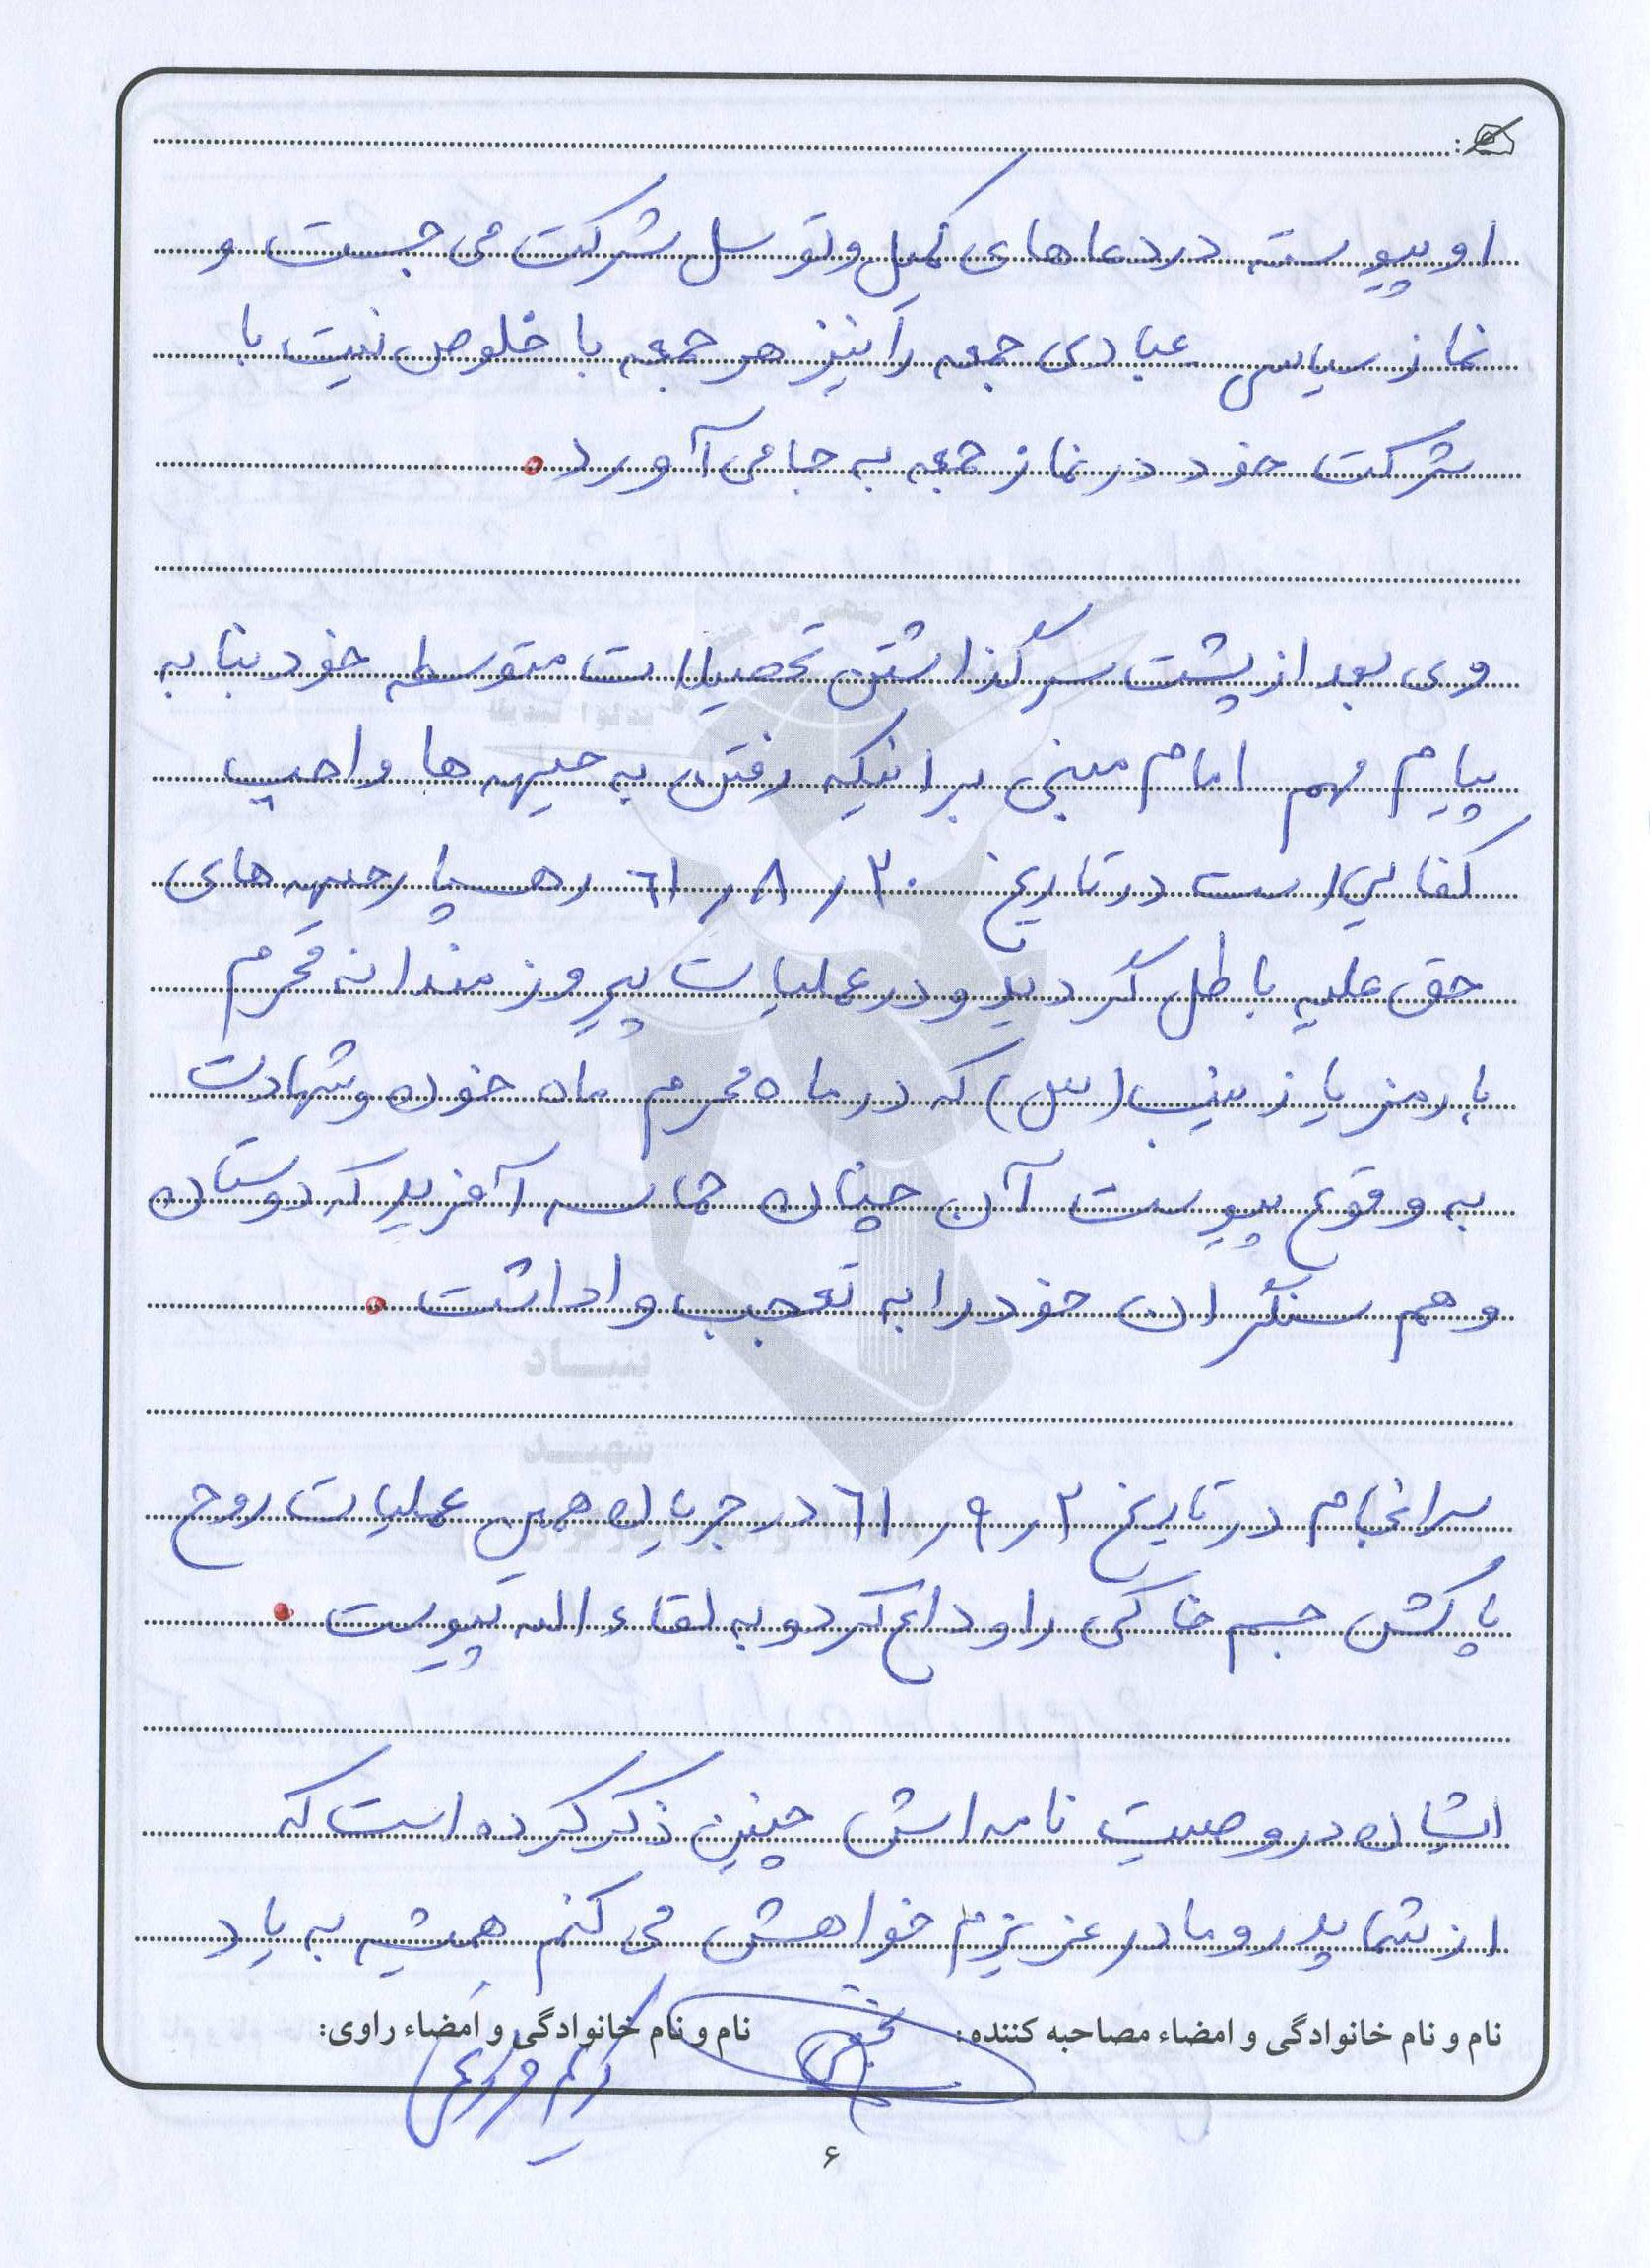 او پیوسته در دعاهای کمیل و توسل شرکت می جست و
نماز سیاسی عبادی جمعه را نیز هر جمعه با خلوص نیت با
شرکت خود در نماز جمعه به جا می آورد.
وی بعد از پشت سر گذاشتن تحصیلات متوسطه خود بنا به
پیام مهم امام مبنی بر اینکه رفتن به جبهه ها واجب
کفایی است در تاریخ ۲۰ ر ۸ ر ۶۱ رهسپار جبهه های
حق علیه باطل گردید و در عملیات پیروزمندانه محرم
با رمز یا زینب (س) که در ماه محرم ماه خون و شهادت
به وقوع پیوست آن چنان حماسه آفرید که دوستان
و هم سنگران خود را به تعجب واداشت.
سرانجام در تاریخ ۲ ر ۹ ر ۶۱ در جریان همین عملیات روح
پاکش جسم خاکی را وداع کرد و به لقاء الله پیوست.
ایشان در وصیت نامه اش چنین ذکر کرده است که
از شما پدر و مادر عزیزم خواهش می کنم همیشه به یاد
نام و نام خانوادگی و امضاء مصاحبه کننده: نام و نام خانوادگی و امضاء راوی:
۶
بنیاد
شهید